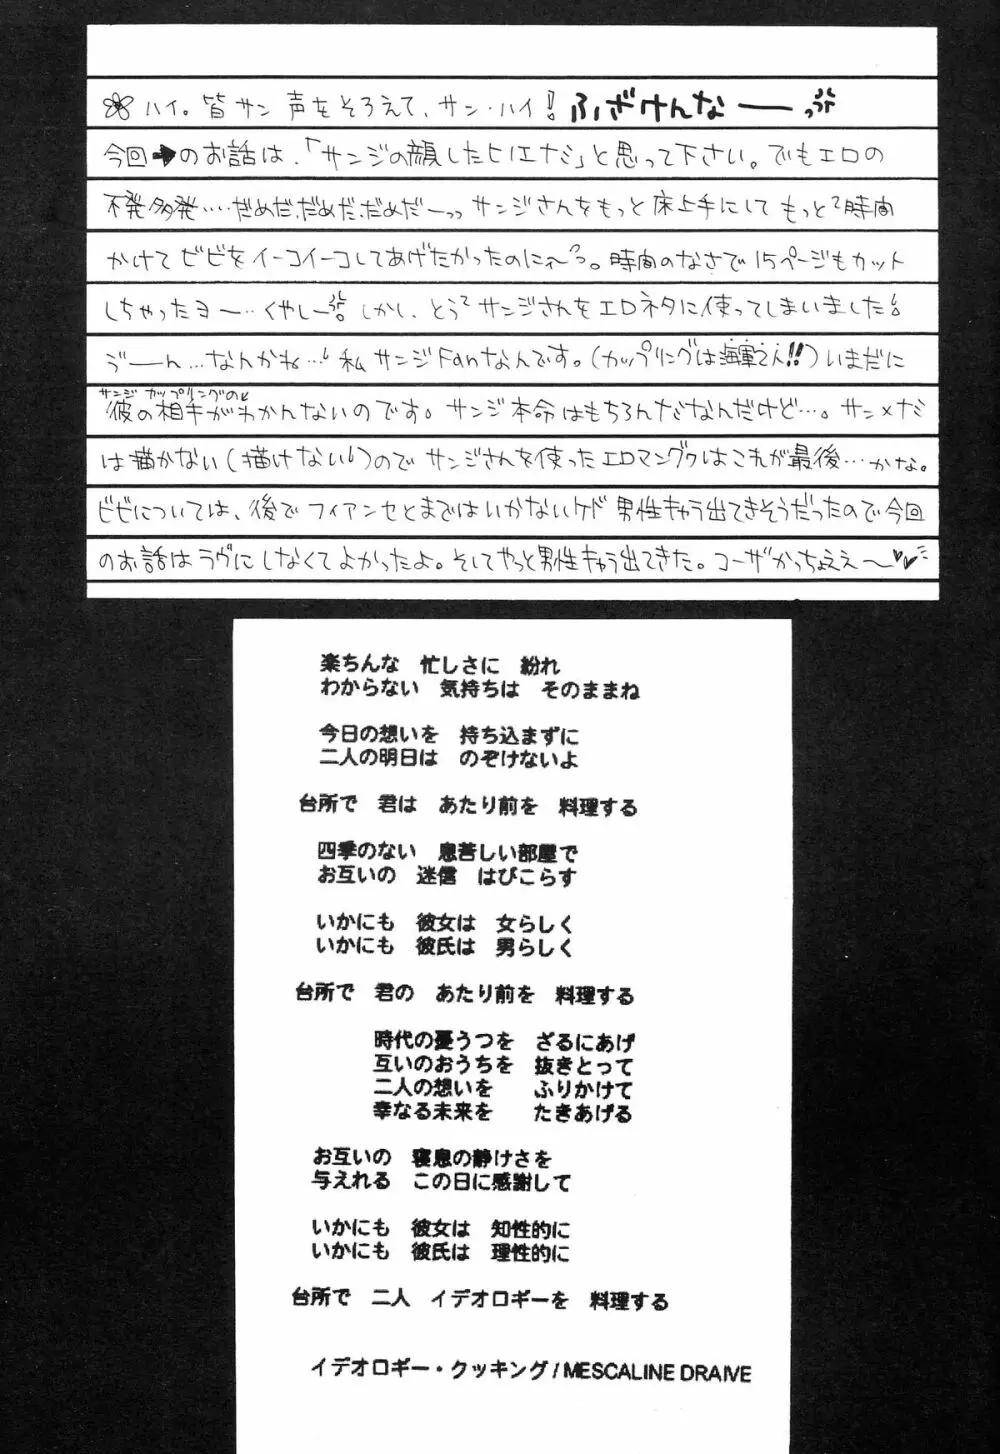 ハイ。皆サン声をそろえて、サン・ハイ!ふざけんなーっ
今回➡のお話は、「サンジの顔したヒノエナミ」と思って下さい。でもエロの
不発多発‥‥だめだ、だめだ、だめだーっっ サンジさんをもっと床上手にして もっと2時間
かけて ビビをイーコイーコしてあげたかったのにぃ〜っ。時間のなさで15ページもカット
しちゃったヨー‥くやしーっ。しかし、とうとうサンジさんをエロネタに使ってしまいました。
う゛ーん…なんかね…私 サンジFanなんです。(カップリングは海軍さん!!)いまだに
サンジ カップリングの
彼の相手がわかんないのです。サンジ本命はもちろんナミなんだけど…。サン×ナミ
は描かない(描けない)ので サンジさんを使ったエロマンガはこれが最後…かな。
ビビについては、後でフィアンセとまではいかないケド 男性キャラ出てきそうだったので今回
のお話はラヴにしなくてよかったよ。そしてやっと男性キャラ出てきた。コーザかっちょええ〜
楽ちんな 忙しさに 紛れ
わからない 気持ちは そのままね
今日の想いを 持ち込まずに
二人の明日は のぞけないよ
台所で 君は あたり前を 料理する
四季のない 息苦しい部屋で
お互いの 迷信 はびこらす
いかにも 彼女は 女らしく
いかにも 彼氏は 男らしく
台所で 君の あたり前を 料理する
時代の憂うつを ざるにあげ
互いのおうちを 抜きとって
二人の想いを ふりかけて
幸なる未来を たきあげる
お互いの 寝息の静けさを
与えれる この日に感謝して
いかにも 彼女は 知性的に
いかにも 彼氏は 理性的に
台所で 二人 イデオロギーを 料理する
イデオロギー・クッキング/MESCALINE DRAIVE